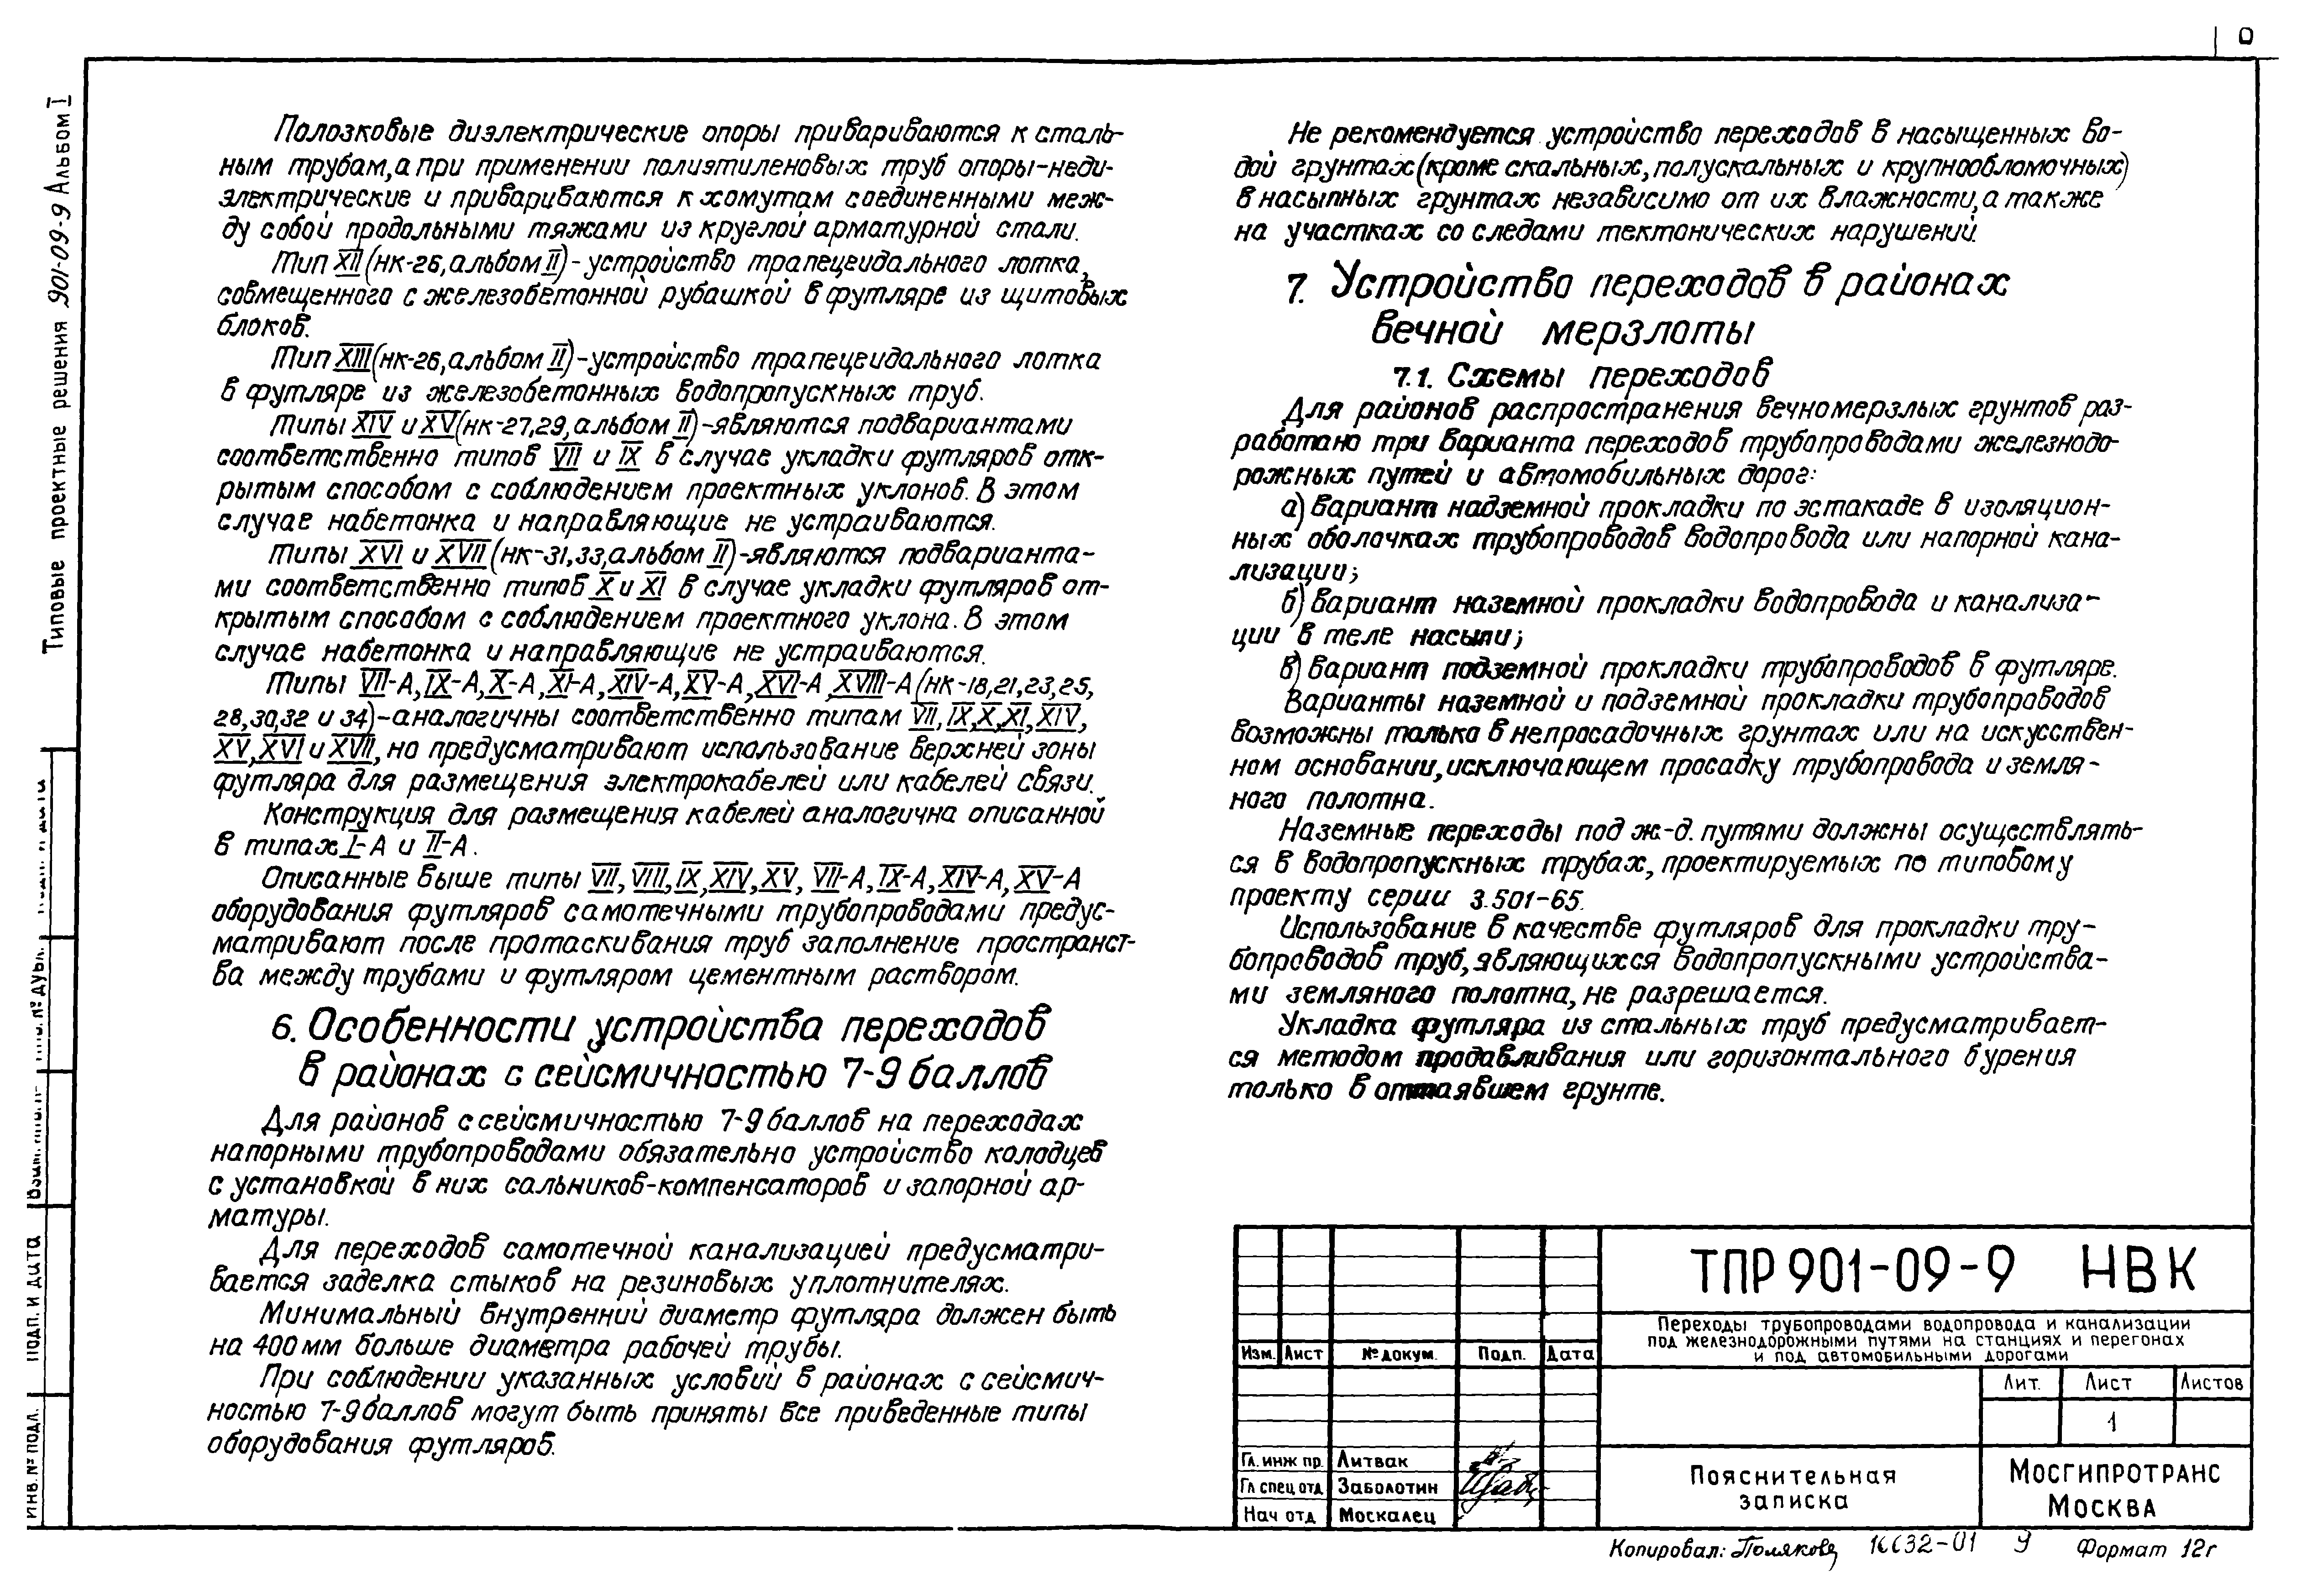 Типовые проектные решения 901-09-9 Альбом I
Полозковые диэлектрические опоры привариваются к сталь-
ным трубам, а при применении полиэтиленовых труб опоры-неди-
электрические и привариваются к хомутам соединенными меж-
ду собой продольными тяжами из круглой арматурной стали.
Тип XII (НК-26, альбом II) - устройство трапецеидального лотка,
совмещенного с железобетонной рубашкой в футляре из щитовых
блоков.
Тип XIII (НК-26, альбом II) - устройство трапецеидального лотка
в футляре из железобетонных водопропускных труб.
Типы XIV и XV (НК-27,29, альбом II) - являются подвариантами
соответственно типов VII и IX в случае укладки футляров отк-
рытым способом с соблюдением проектных уклонов. В этом
случае набетонка и направляющие не устраиваются.
Типы XVI и XVII (НК-31,33, альбом II) - являются подварианта-
ми соответственно типов X и XI в случае укладки футляров от-
крытым способом с соблюдением проектного уклона. В этом
случае набетонка и направляющие не устраиваются.
Типы VII-А, IX-А, X-А, XI-А, XIV-А, XV-А, XVI-А, XVIII-А (НК-18,21,23,25,
28,30,32 и 34) - аналогичны соответственно типам VII, IX, X, XI, XIV,
XV, XVI и XVII, но предусматривают использование верхней зоны
футляра для размещения электрокабелей или кабелей связи.
Конструкция для размещения кабелей аналогична описанной
в типах I-А и II-А.
Описанные выше типы VII, VIII, IX, XIV, XV, VII-А, IX-А, XIV-А, XV-А
оборудования футляров самотечными трубопроводами предус-
матривают после протаскивания труб заполнение пространст-
ва между трубами и футляром цементным раствором.
6. Особенности устройства переходов
в районах с сейсмичностью 7-9 баллов
Для районов с сейсмичностью 7-9 баллов на переходах
напорными трубопроводами обязательно устройство колодцев
с установкой в них сальников-компенсаторов и запорной ар-
матуры.
Для переходов самотечной канализацией предусматри-
вается заделка стыков на резиновых уплотнителях.
Минимальный внутренний диаметр футляра должен быть
на 400 мм больше диаметра рабочей трубы.
При соблюдении указанных условий в районах с сейсмич-
ностью 7-9 баллов могут быть приняты все приведенные типы
оборудования футляров.
Не рекомендуется устройство переходов в насыщенных во-
дой грунтах (кроме скальных, полускальных и крупнообломочных)
в насыпных грунтах независимо от их влажности, а также
на участках со следами тектонических нарушений.
7. Устройство переходов в районах
вечной мерзлоты
7.1. Схемы переходов
Для районов распространения вечномерзлых грунтов раз-
работано три варианта переходов трубопроводами железнодо-
рожных путей и автомобильных дорог:
а) вариант надземной прокладки по эстакаде в изоляцион-
ных оболочках трубопроводов водопровода или напорной кана-
лизации;
б) вариант наземной прокладки водопровода и канализа-
ции в теле насыпи;
в) вариант подземной прокладки трубопроводов в футляре.
Варианты наземной и подземной прокладки трубопроводов
возможны только в непросадочных грунтах или на искусствен-
ном основании, исключающем просадку трубопровода и земля-
ного полотна.
Наземные переходы под ж-д. путями должны осуществлять-
ся в водопропускных трубах, проектируемых по типовому
проекту серии 3.501-65.
Использование в качестве футляров для прокладки тру-
бопроводов труб, являющихся водопропускными устройства-
ми земляного полотна, не разрешается.
Укладка футляра из стальных труб предусматривает-
ся методом продавливания или горизонтального бурения
только в оттаявшем грунте.
ТПР 901-09-9 НВК
Переходы трубопроводами водопровода и канализации
под железнодорожными путями на станциях и перегонах
и под автомобильными дорогами
Изм. Лист № докум. Подп. Дата
Лит. Лист Листов
1
Гл. инж пр. Литвак
Гл спец отд Заболотин
Нач отд Москалец
Пояснительная
записка
Мосгипротранс
Москва
Инв. № подл.
Подп. и дата
Инв. № дубл.
Копировал: Полякова 16632-01 9 Формат 12г